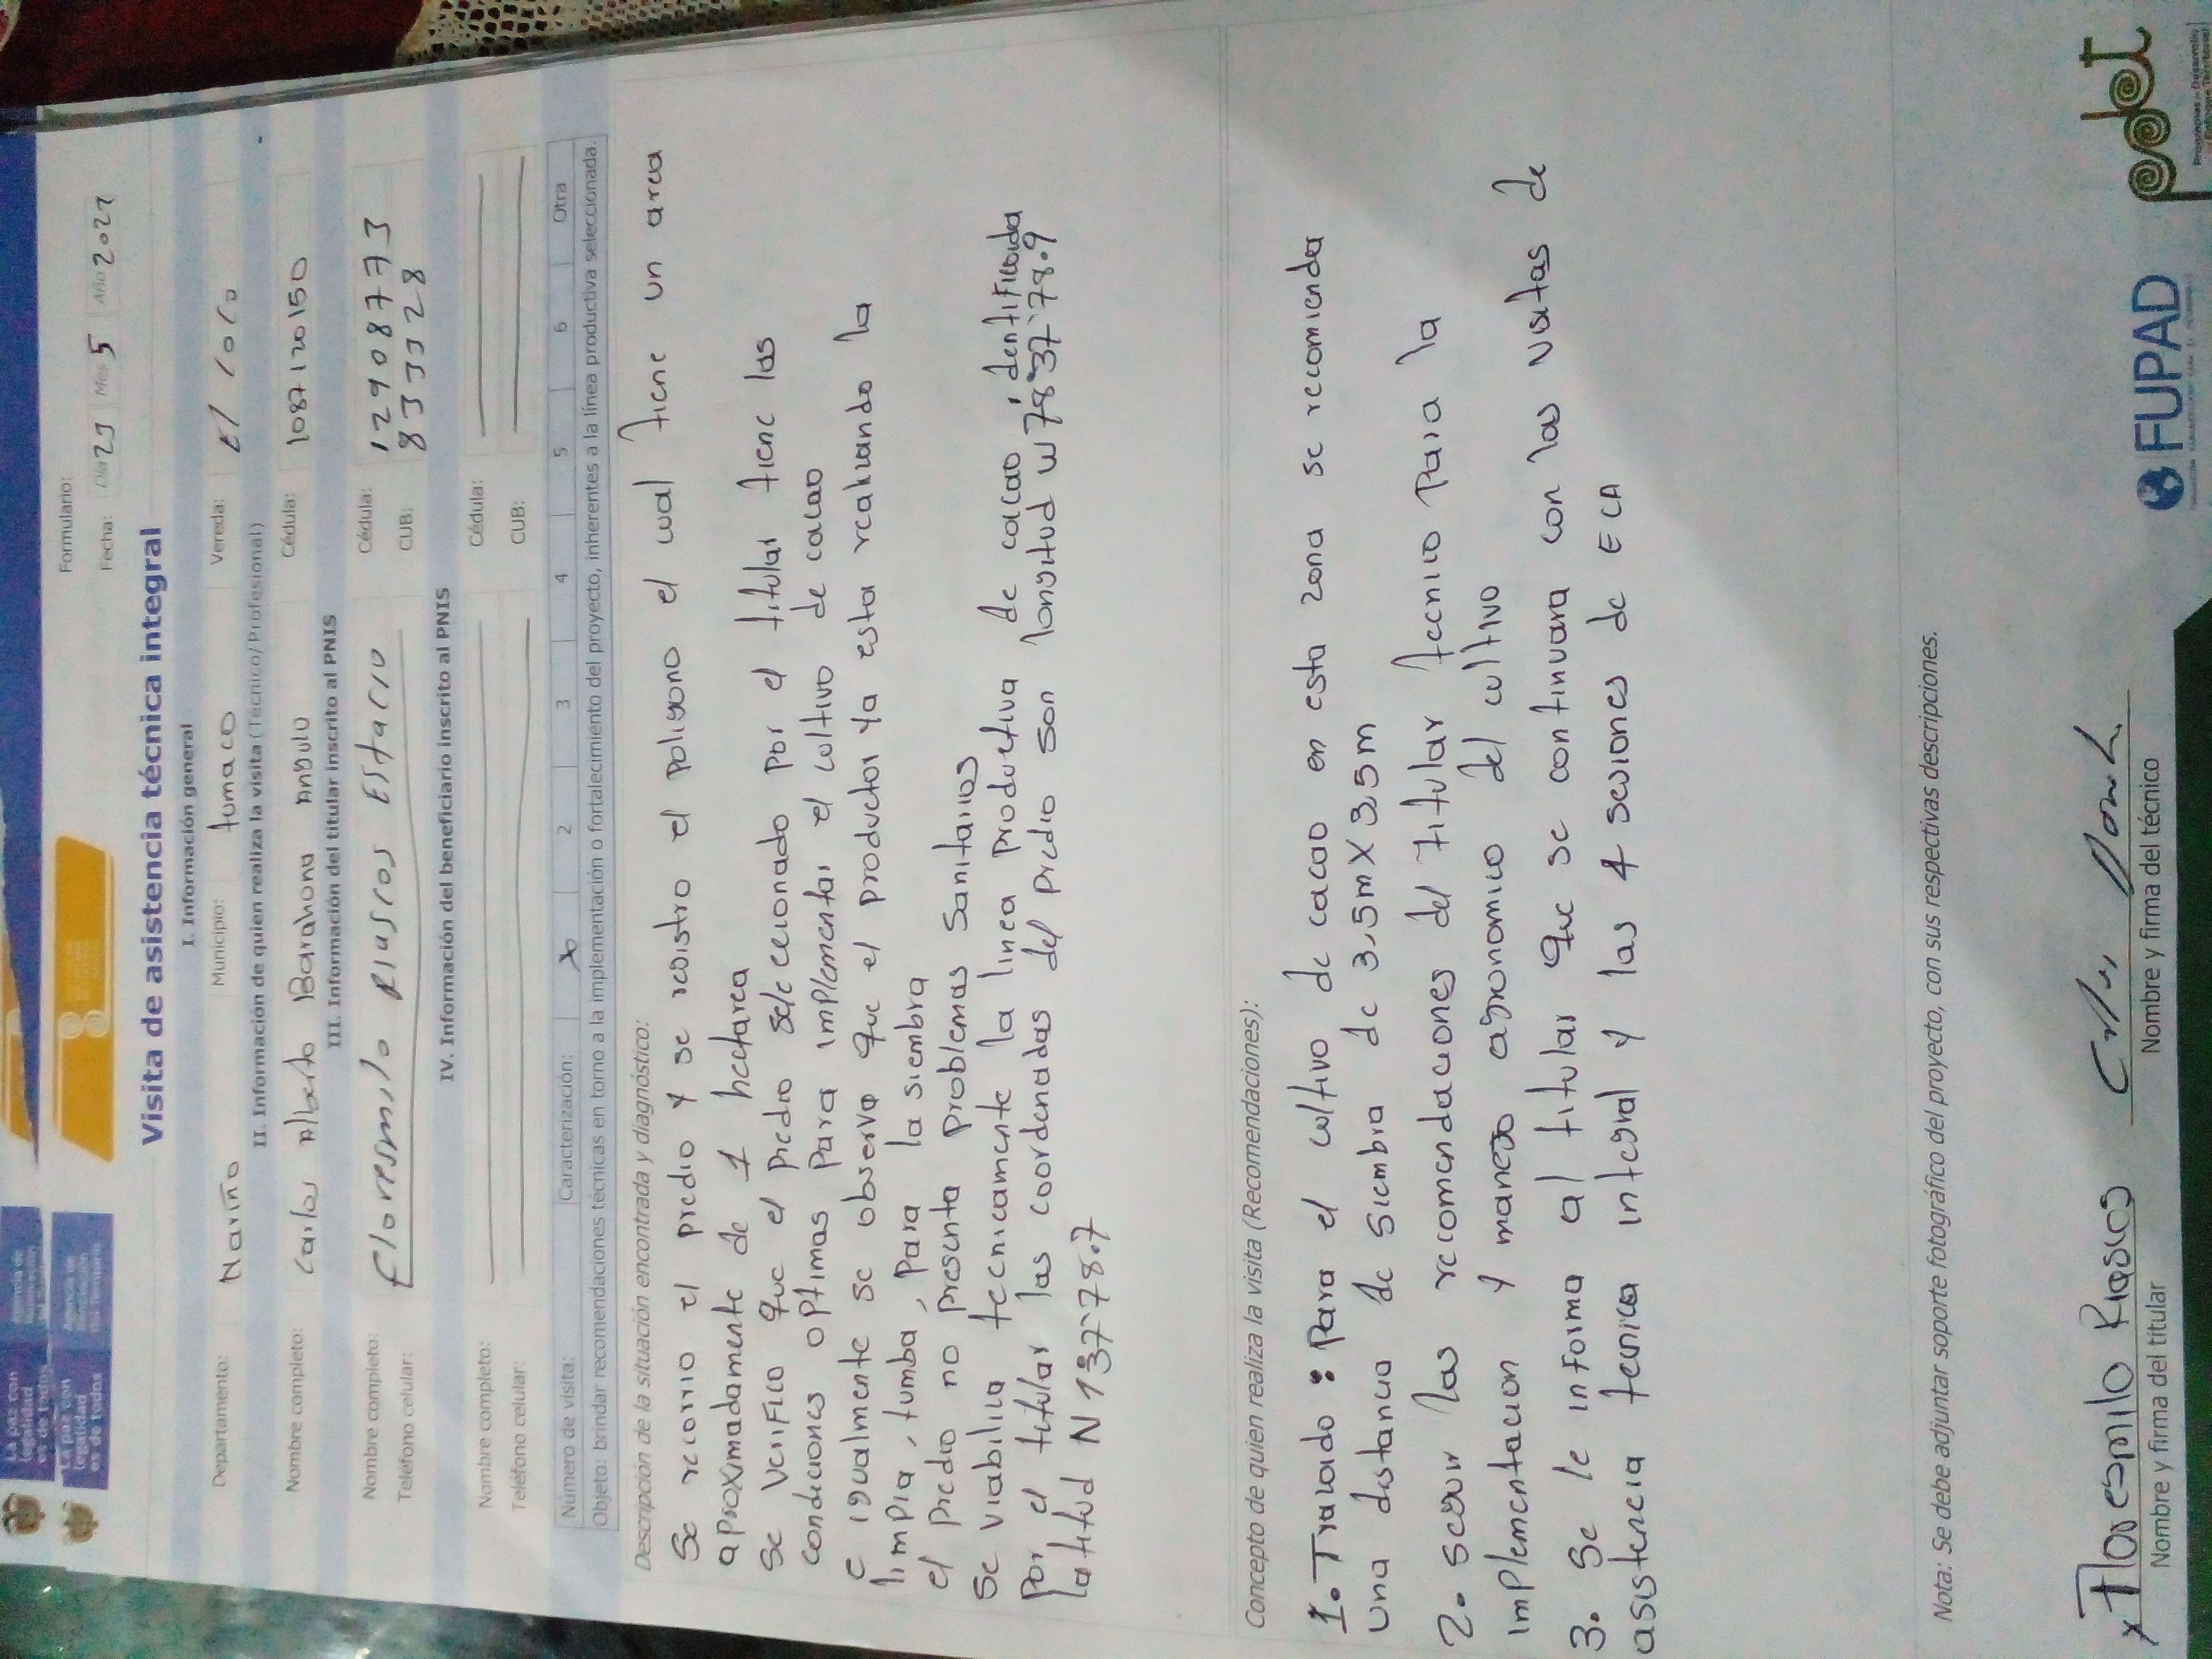 La paz con
legalidad
es de todos
La paz con
legalidad
es de todos
Formulario:
Fecha: Día 23 Mes 5 Año 2021
Visita de asistencia técnica integral
I. Información general
Departamento: Nariño Municipio: tumaco Vereda: El coro
II. Información de quien realiza la visita (Técnico/Profesional)
Nombre completo: Carlos Alberto Barahona Angulo Cédula: 1087120150
III. Información del titular inscrito al PNIS
Nombre completo: Floresmilo Riascos Estacio Cédula: 12908773
Teléfono celular: CUB: 8333328
IV. Información del beneficiario inscrito al PNIS
Nombre completo: Cédula:
Teléfono celular: CUB:
Número de visita: Caracterización: X 2 3 4 5 6 Otra
Objeto: brindar recomendaciones técnicas en torno a la implementación o fortalecimiento del proyecto, inherentes a la línea productiva seleccionada.
Descripción de la situación encontrada y diagnóstico:
Se recorrio el predio y se registro el poligono el cual tiene un area
aproximadamente de 1 hectarea
Se verifico que el predio seleccionado por el titular tiene las
condiciones optimas para implementar el cultivo de cacao
e igualmente se observo que el productor ya esta realizando la
limpia, tumba, para la siembra
el predio no presenta problemas sanitarios
Se viabiliza tecnicamente la linea productiva de cacao identificada
por el titular las coordenadas del predio son longitud W 78°37'78.9
latitud N 1°37'78.7
Concepto de quien realiza la visita (Recomendaciones):
1. Trazado: Para el cultivo de cacao en esta zona se recomienda
una distancia de siembra de 3.5m X 3.5m
2. seguir las recomendaciones del titular tecnico para la
implementacion y manejo agronomico del cultivo
3. Se le informa al titular que se continuara con las visitas de
asistencia tecnica integral y las 4 sesiones de ECA
Nota: Se debe adjuntar soporte fotográfico del proyecto, con sus respectivas descripciones.
x Floresmilo Riascos
Nombre y firma del titular
Nombre y firma del técnico
FUPAD
pdet